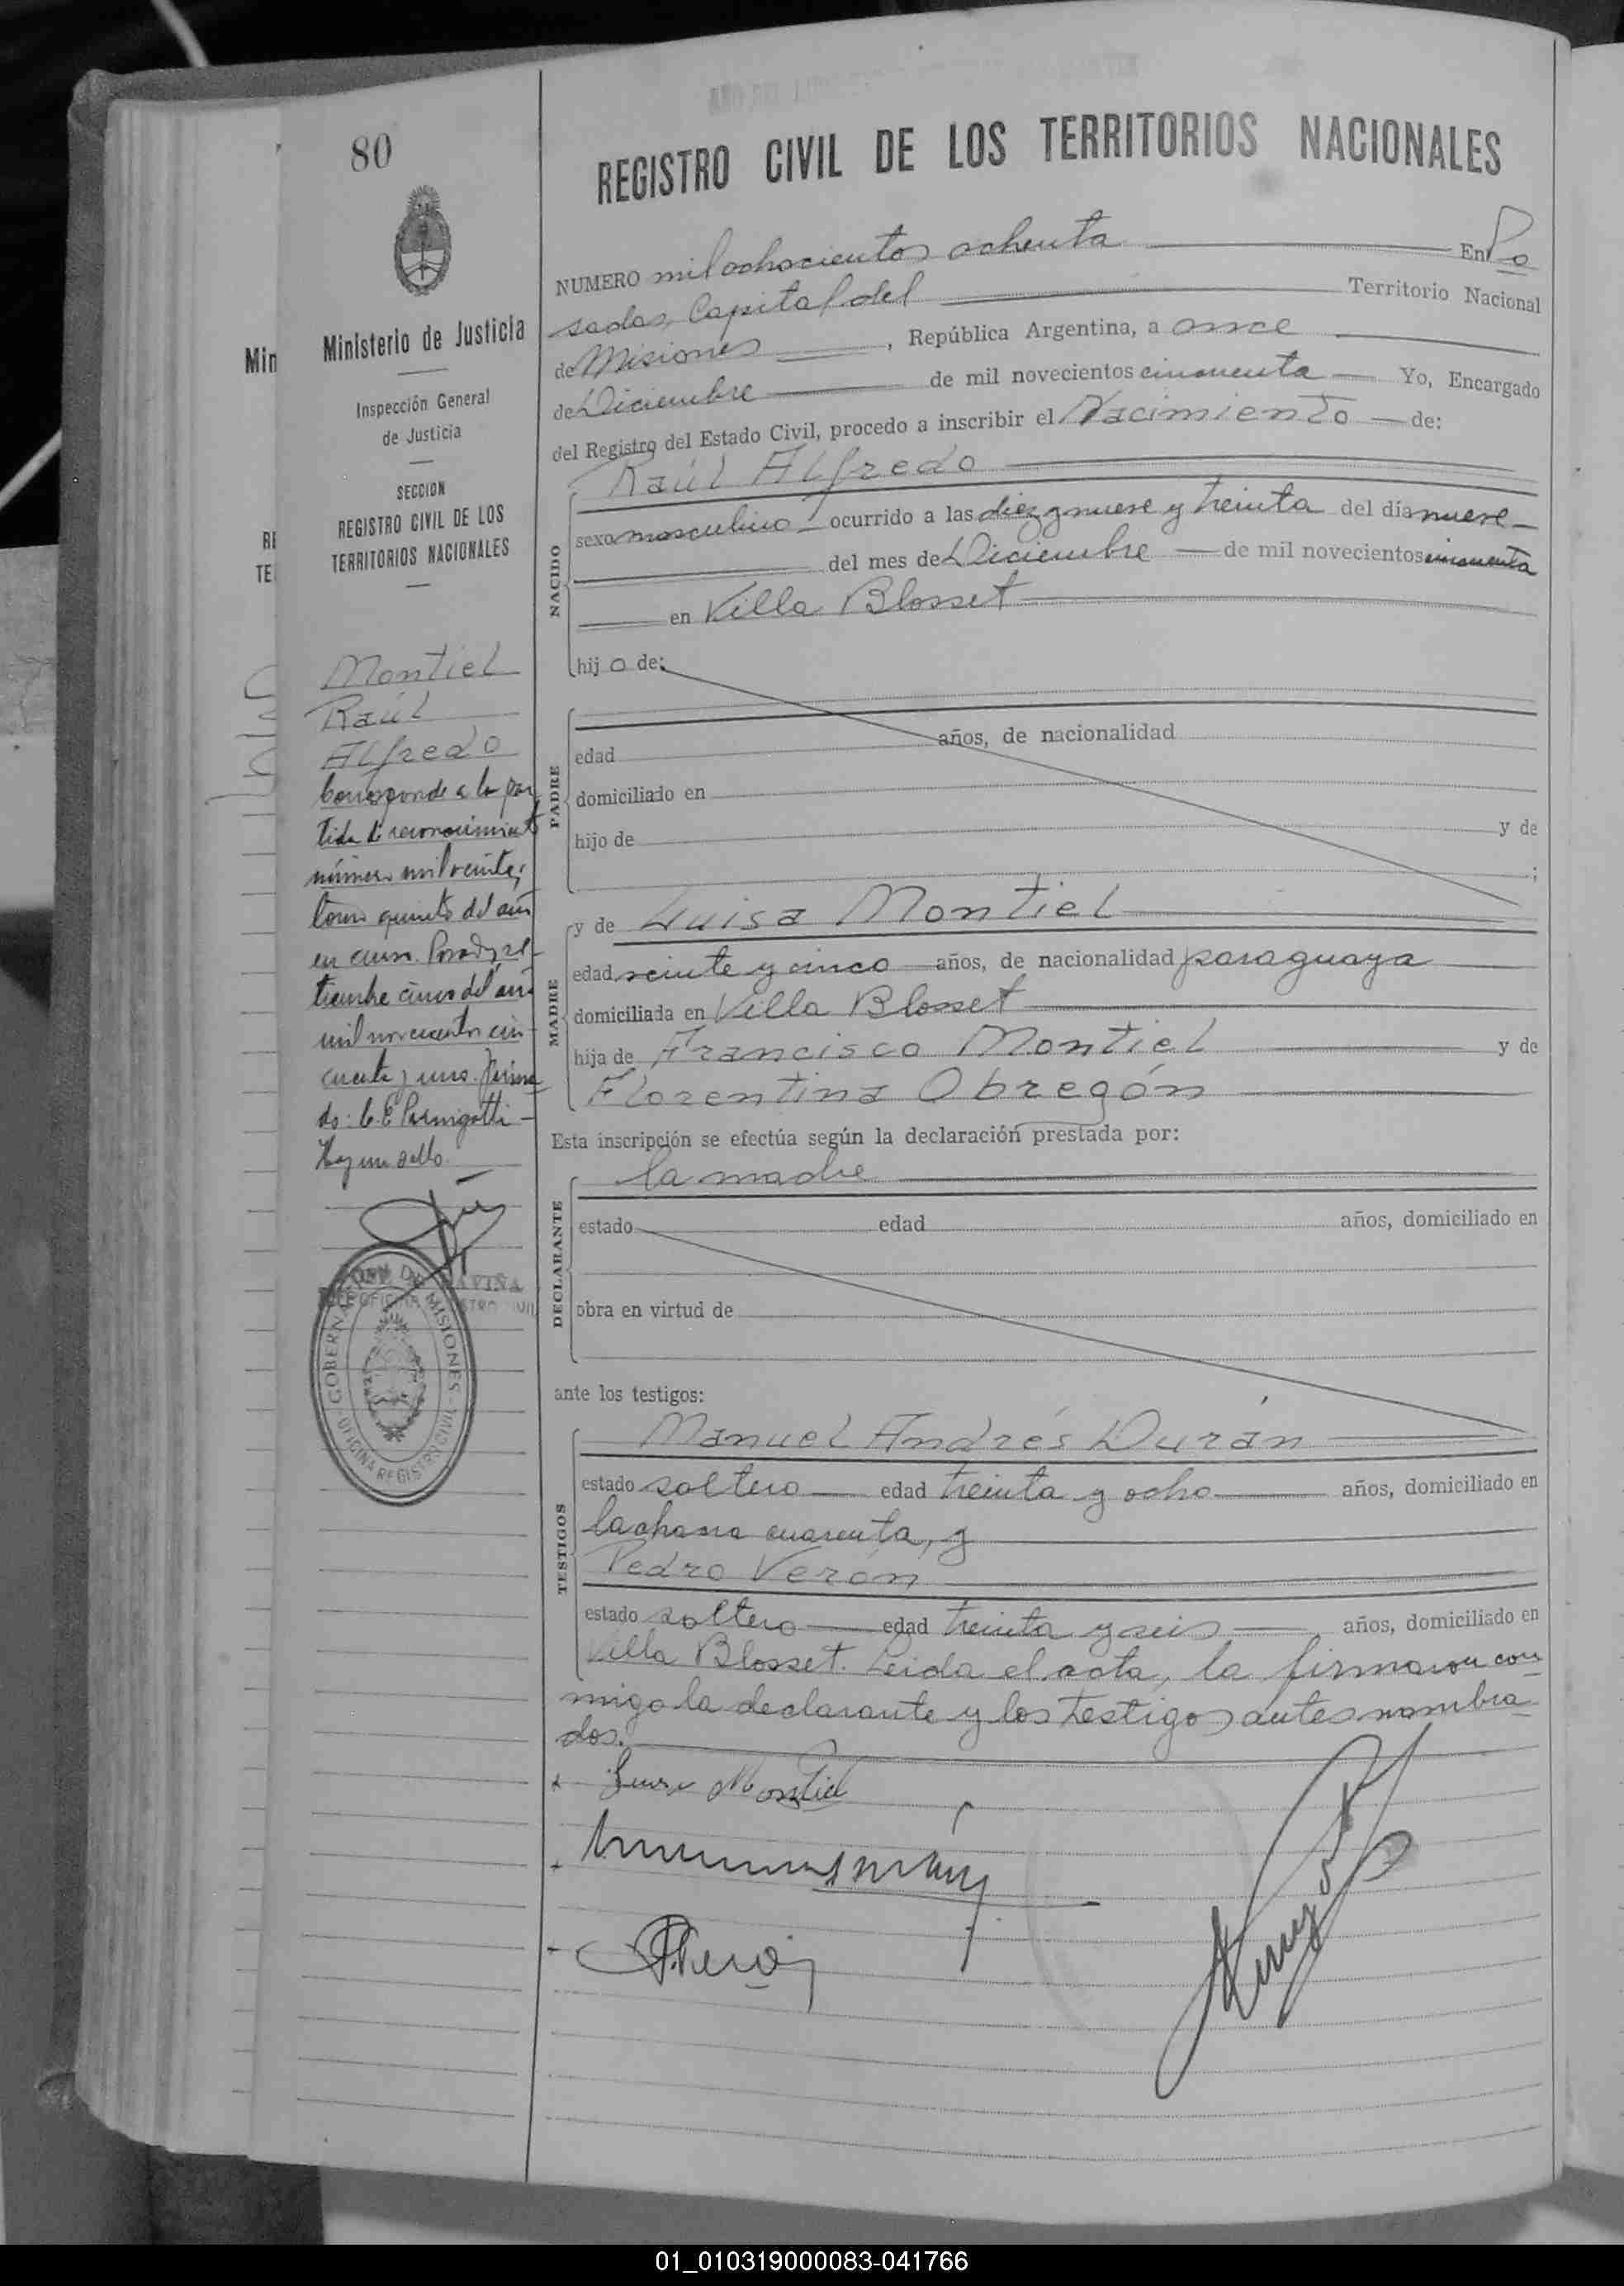 80
REGISTRO CIVIL DE LOS TERRITORIOS NACIONALES
Min
Ministerio de Justicia
Inspección General
de Justicia
SECCION
REGISTRO CIVIL DE LOS
TERRITORIOS NACIONALES
RE
TE
Montiel
Raúl
Alfredo
Corresponde a la par
tida de reconocimiento
número mil veinte,
tomo quinto del año
en curso. Posadas, se
tiembre cinco del año
mil novecientos cin
cuenta y uno. Firma
do: C. E. Parmigotti
Hay un sello.
GOBERNACION DE MISIONES
OFICINA REGISTRO CIVIL
NUMERO mil ochocientos ochenta En Po
sadas, Capital del Territorio Nacional
de Misiones, República Argentina, a once
de Diciembre de mil novecientos cincuenta Yo, Encargado
del Registro del Estado Civil, procedo a inscribir el Nacimiento de:
NACIDO
Raúl Alfredo
sexo masculino ocurrido a las diez y nueve y treinta del día nueve
del mes de Diciembre de mil novecientos cincuenta
en Villa Blosset
hijo de:
PADRE
edad años, de nacionalidad
domiciliado en
hijo de y de
;
MADRE
y de Luisa Montiel
edad veinte y cinco años, de nacionalidad paraguaya
domiciliada en Villa Blosset
hija de Francisco Montiel y de
Florentina Obregón
Esta inscripción se efectúa según la declaración prestada por:
DECLARANTE
la madre
estado edad años, domiciliado en
obra en virtud de
ante los testigos:
TESTIGOS
Manuel Andrés Durán
estado soltero edad treinta y ocho años, domiciliado en
la chacra cuarenta, y
Pedro Verón
estado soltero edad treinta y seis años, domiciliado en
Villa Blosset. Leida el acta, la firmaron con
migo la declarante y los testigos antes nombra
dos.
Luisa Montiel
PVerón
01_010319000083-041766